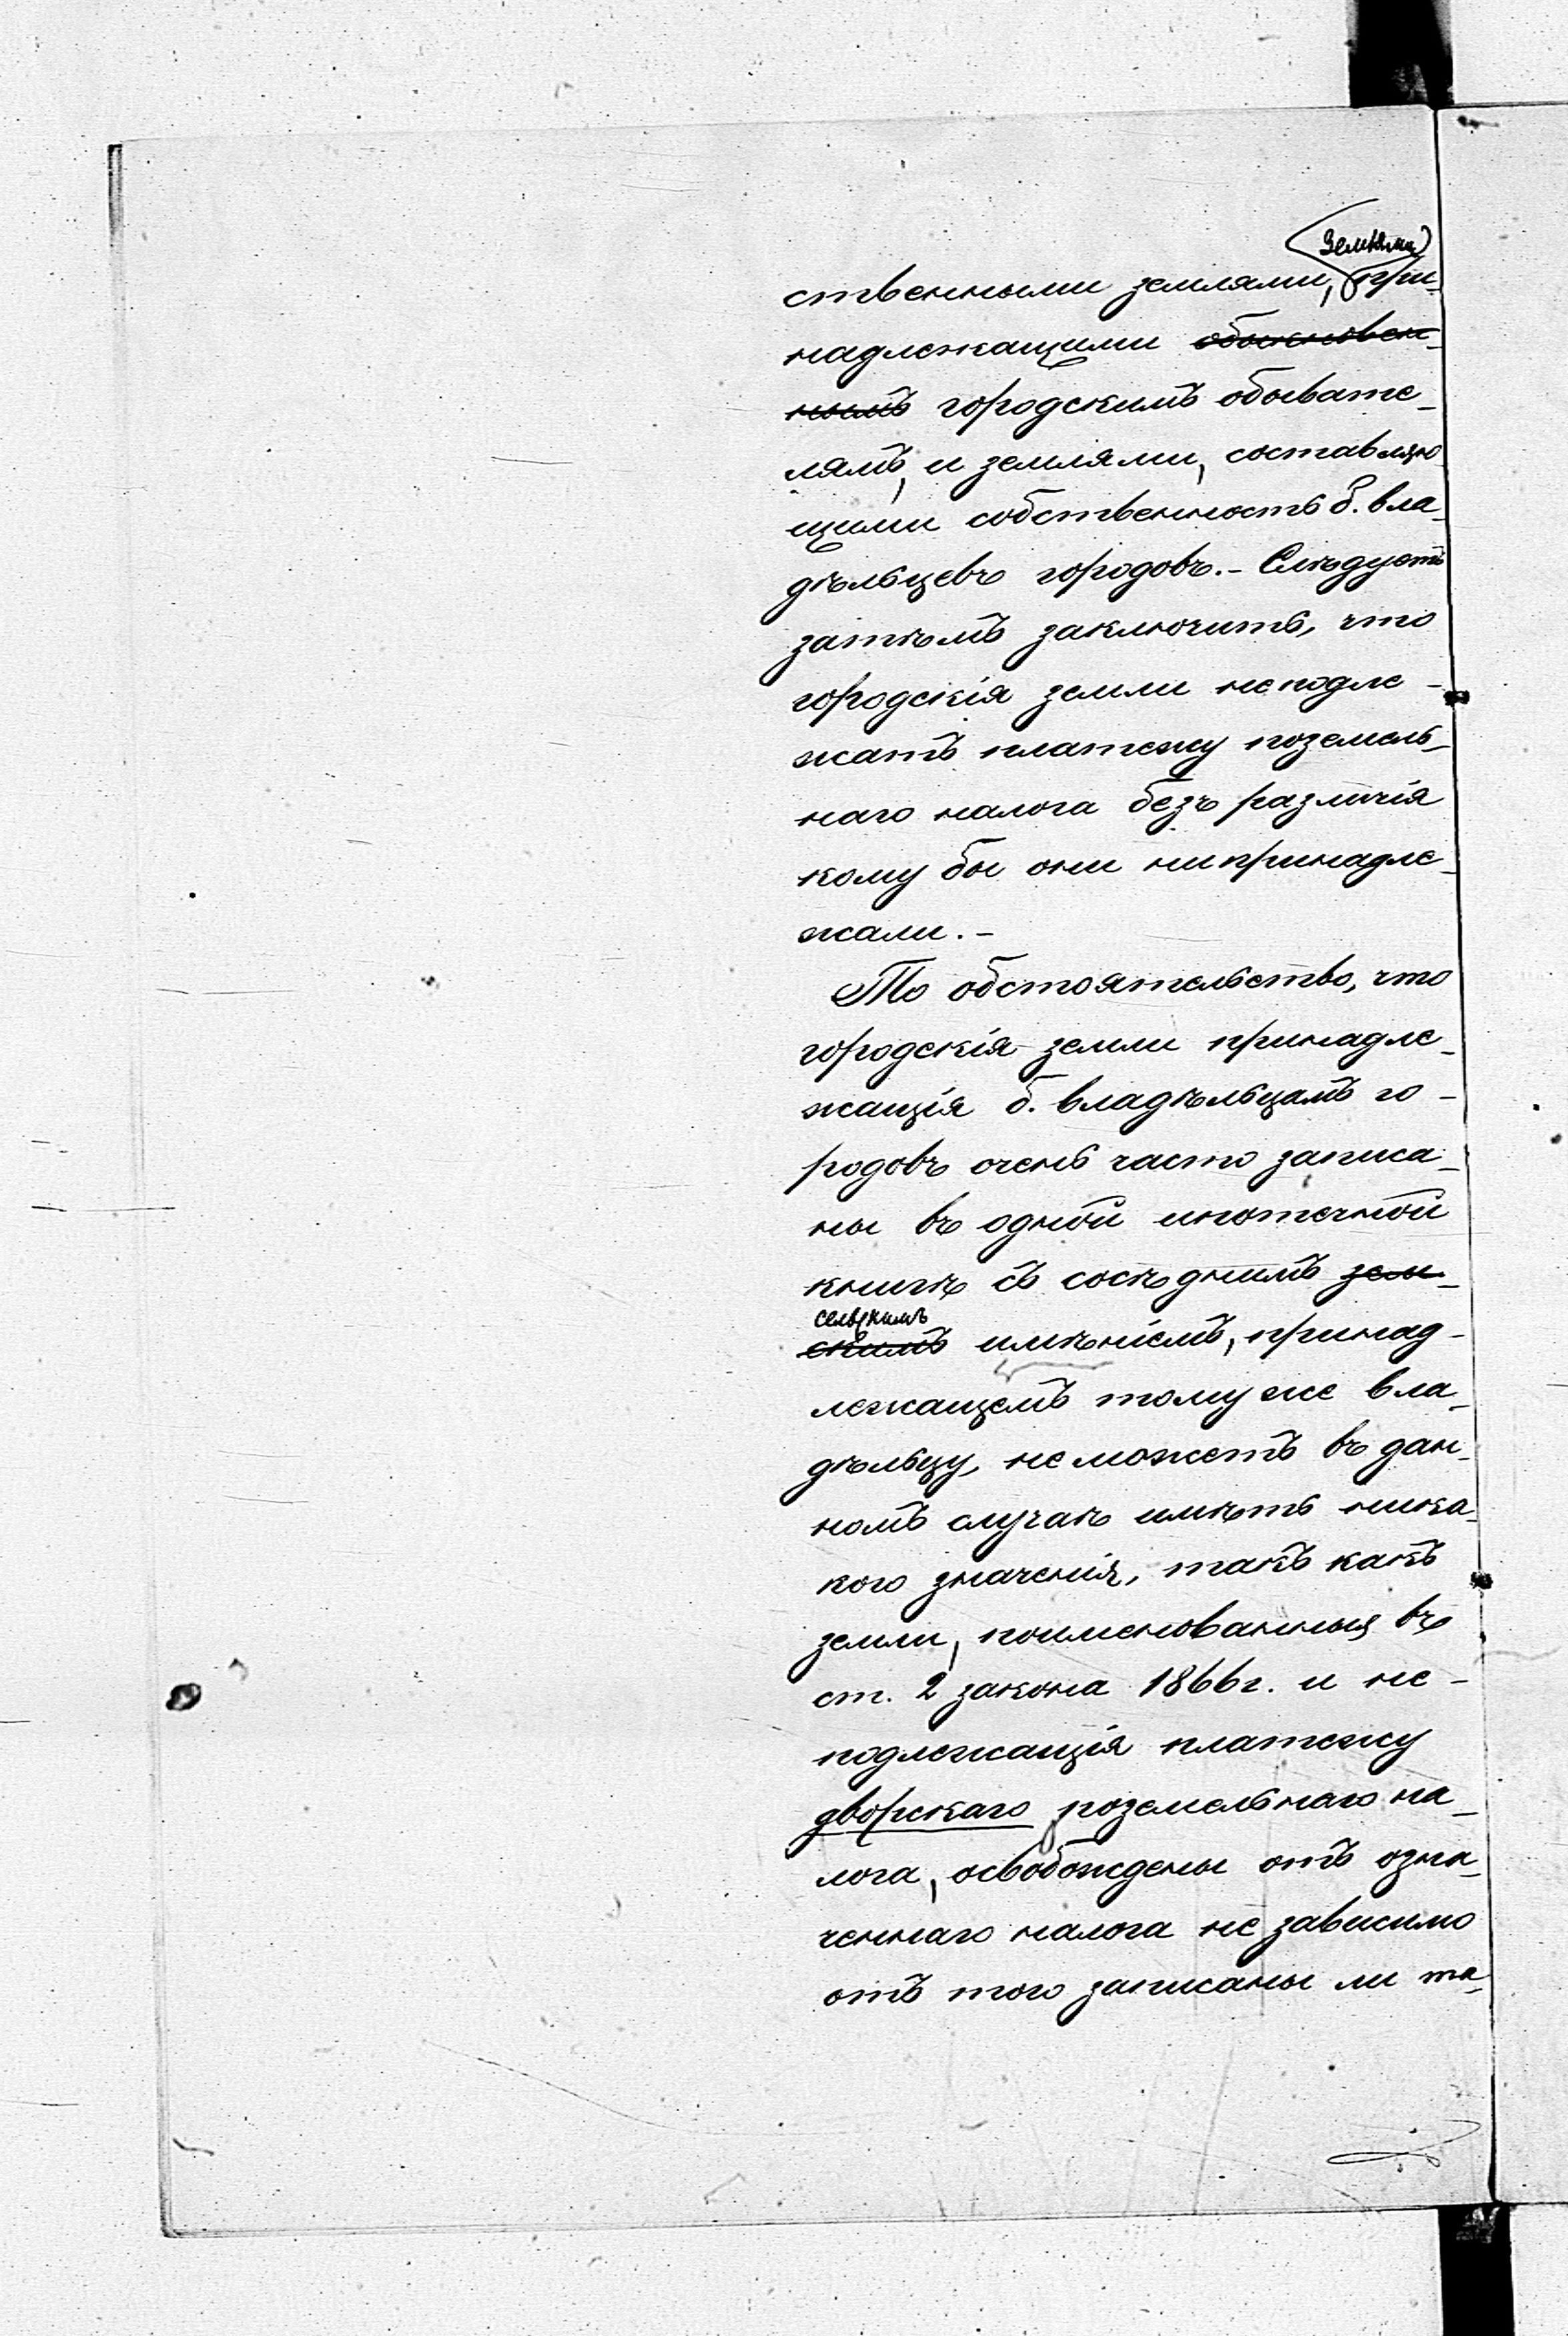 землями
ственными землями, при-
надлежащими обыкновен-
нымъ городскимъ обывате-
лямъ, и землями, составляю-
щими собственность б. вла-
дѣльцевъ городовъ. - Слѣдуетъ
затѣмъ заключить, что
городскія земли не подле-
жатъ платежу поземель-
наго налога безъ различія
кому бы они ни принадле-
жали. -
То обстоятельство, что
городскія земли принадле-
жащія б. владѣльцамъ го-
родовъ очень часто записа-
ны въ одной ипотечной
книгѣ съ сосѣднимъ зем-
сельскимъ
скимъ имѣніемъ, принад-
лежащемъ тому же вла-
дѣльцу, не можетъ въ дан-
номъ случаѣ имѣть ника-
кого значенія, такъ какъ
земли, поименованныя въ
ст. 2 закона 1866 г. и не-
подлежащія платежу
дворскаго поземельнаго на-
лога, освобождены отъ озна-
ченнаго налога не зависимо
отъ того записаны ли та-